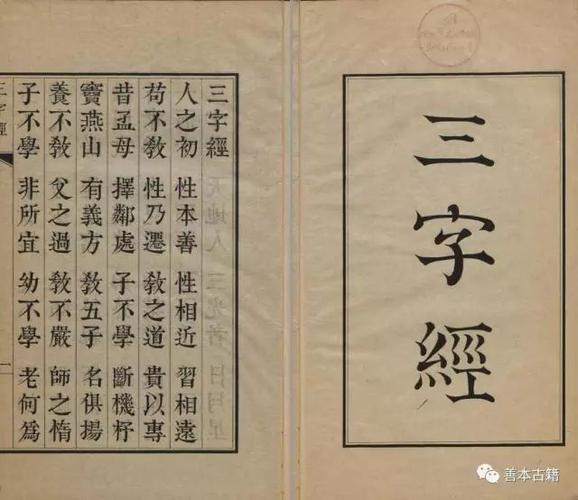 三字經
三字經
人之初 性本善 性相近 習相遠
苟不敎 性乃遷 敎之道 貴以專
昔孟母 擇鄰處 子不學 斷機杼
竇燕山 有義方 敎五子 名俱揚
養不敎 父之過 敎不嚴 師之惰
子不學 非所宜 幼不學 老何爲
三字經
一
善本古籍